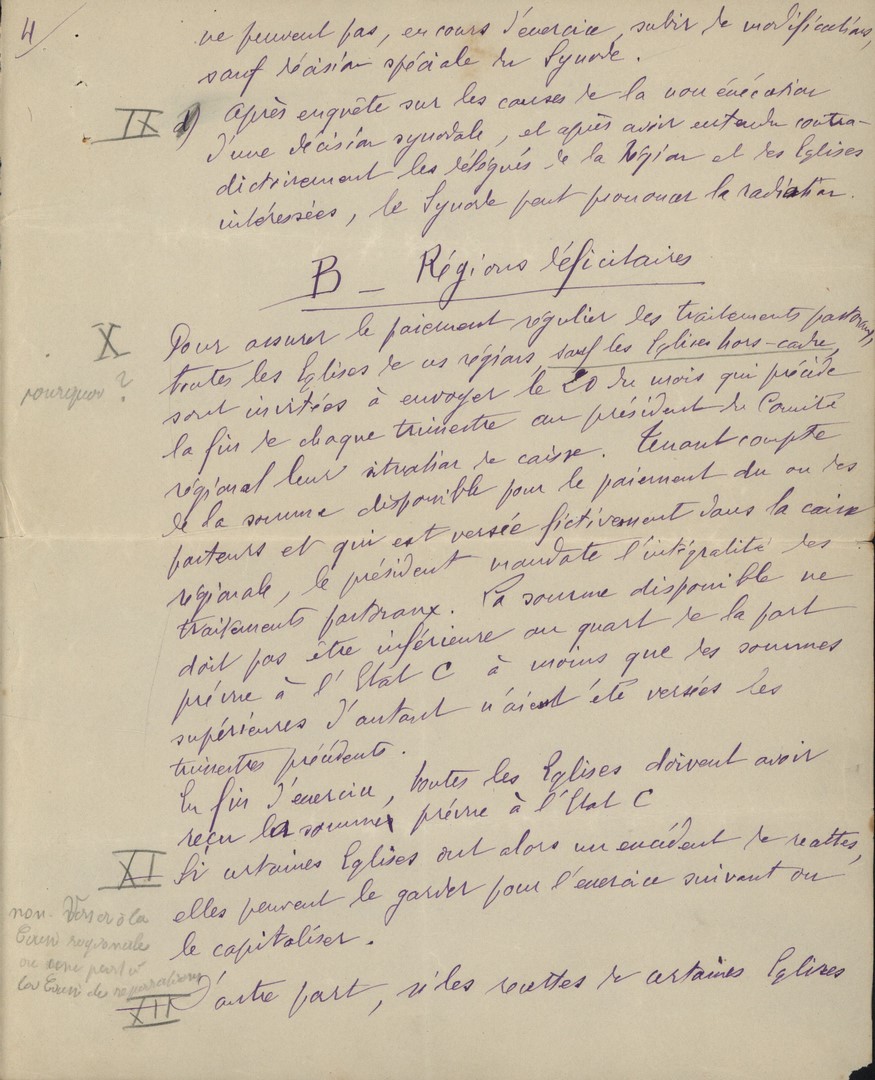 4
ne peuvent pas, en cours d'exercice, subir de modifications,
sauf décision spéciale du Synode.
IX d) Après enquête sur les causes de la non exécution
d'une décision synodale, et après avoir entendu contra-
dictoirement les délégués de la Région et des Eglises
intéressées, le Synode peut prononcer la radiation.
B - Régions déficitaires
X Pour assurer le paiement régulier des traitements pastoraux,
toutes les Eglises de ces régions sauf les Eglises hors-cadre,
pourquoi ?
sont invitées à envoyer le 20 du mois qui précède
la fin de chaque trimestre au président du Comité
régional leur situation de caisse. Tenant compte
de la somme disponible pour le paiement du ou des
pasteurs et qui est versée fictivement dans la caisse
régionale, le président mandate l'intégralité des
traitements pastoraux. La somme disponible ne
doit pas être inférieure au quart de la part
prévue à l'Etat C à moins que des sommes
supérieures d'autant n'aient été versées les
trimestres précédents.
En fin d'exercice, toutes les Eglises doivent avoir
reçu la somme prévue à l'Etat C
XI Si certaines Eglises ont alors un excédent de recettes,
elles peuvent le garder pour l'exercice suivant ou
le capitaliser.
non. Verser à la
Caisse régionale
ou une part à
la Caisse de réparations
XII D'autre part, si les recettes de certaines Eglises